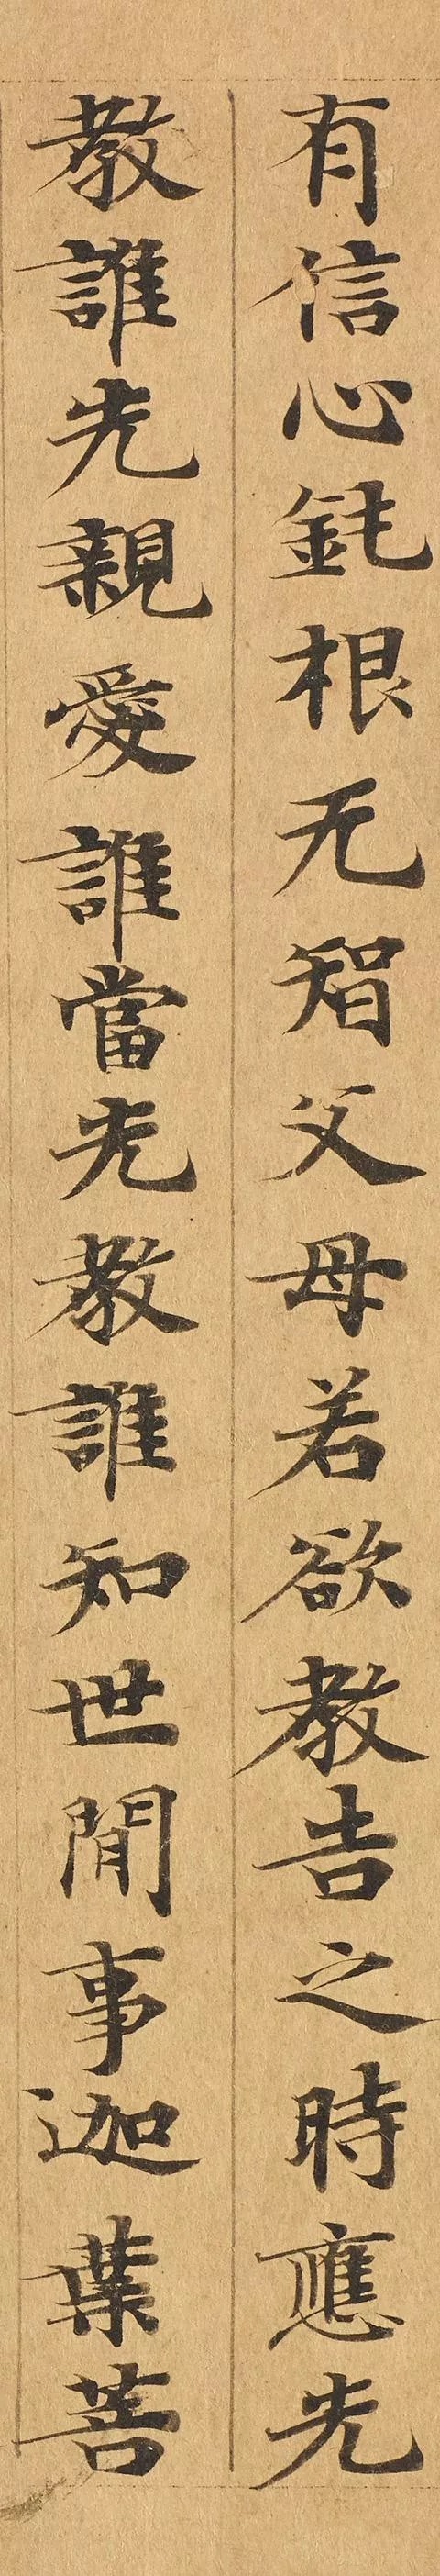 有信心鈍根无智父母若欲教告之時應先
教誰先親愛誰當先教誰知世閒事迦葉菩